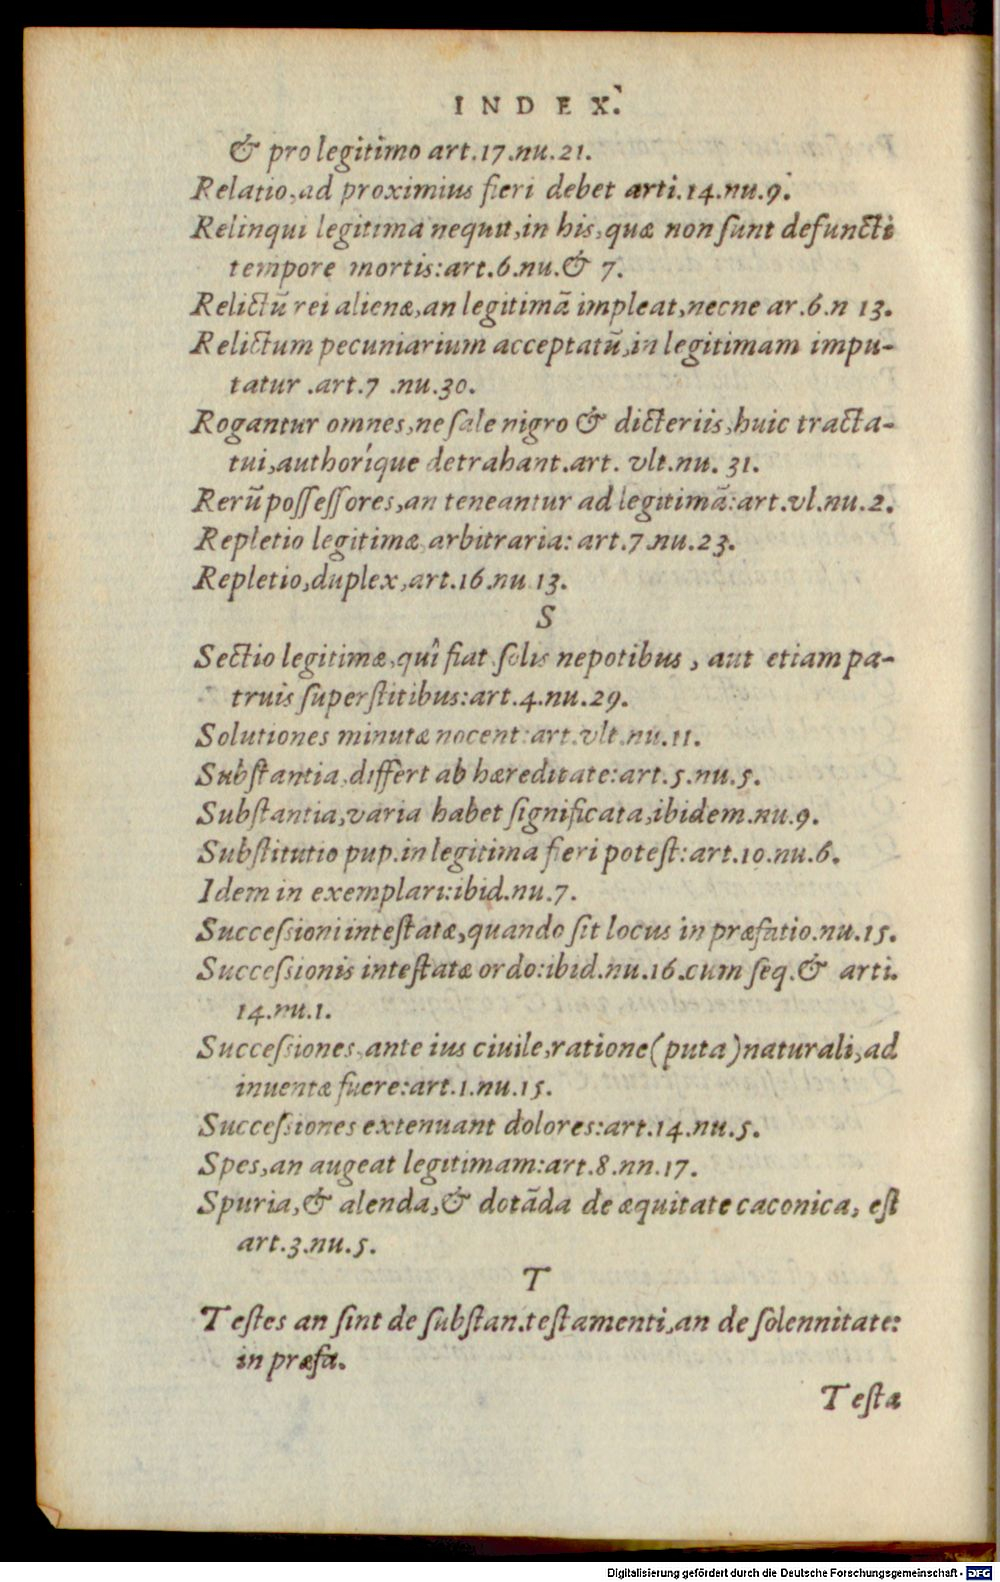 INDEX.
& pro legitimo art.17.nu.21.
Relatio,ad proximius fieri debet arti.14.nu.9.
Relinqui legitima nequit,in his,quæ non ſunt defuncti
tempore mortis:art.6.nu.& 7.
Relictũ rei alienæ,an legitimã impleat,necne ar.6.n 13.
Relictum pecuniarium acceptatũ,in legitimam impu-
tatur .art.7 .nu.30.
Rogantur omnes,ne ſale nigro & dicteriis,huic tracta-
tui,authoríque detrahant.art. vlt.nu. 31.
Rerũ poſſeſſores,an teneantur ad legitimã:art.vl.nu.2.
Repletio legitimæ arbitraria: art.7.nu.23.
Repletio,duplex,art.16.nu 13.
S
Sectio legitimæ,quî fiat ſolis nepotibus , aut etiam pa-
truis ſuperſtitibus:art.4.nu.29.
Solutiones minutæ nocent:art.vlt.nu.11.
Subſtantia,differt ab hæreditate:art.5.nu.5.
Subſtantia,varia habet ſignificata,ibidem.nu.9.
Subſtitutio pup.in legitima fieri poteſt:art.10.nu.6.
Idem in exemplari:ibid.nu.7.
Succeſsioni inteſtatæ,quando ſit locus in præfatio.nu.15.
Succeſsionis inteſtatæ ordo:ibid.nu.16.cum ſeq.& arti.
14.nu.1.
Succeſsiones,ante ius ciuile,ratione(puta)naturali,ad
inuentæ fuere:art.1.nu.15.
Succeſsiones extenuant dolores:art.14.nu.5.
Spes,an augeat legitimam:art.8.nn.17.
Spuria,& alenda,& dotãda de æquitate caconica, eſt
art.3.nu.5.
T
Teſtes an ſint de ſubſtan.teſtamenti,an de ſolennitate:
in præfa.
Teſtæ
Digitalisierung gefördert durch die Deutsche Forschungsgemeinschaft - DFG